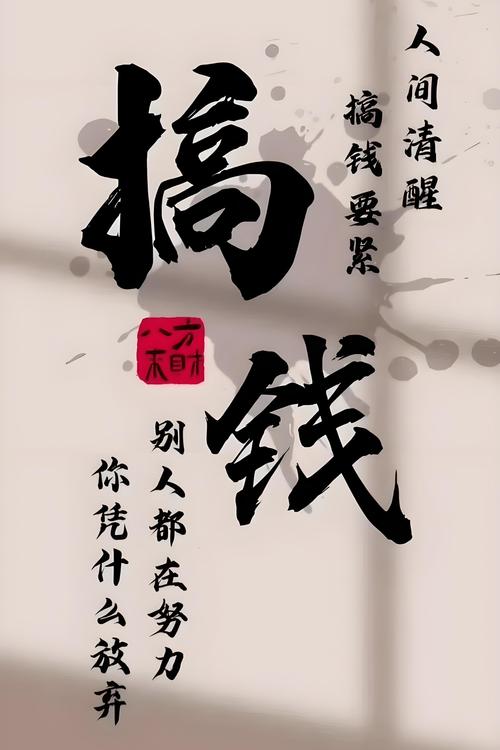 人间清醒
搞钱要紧
搞钱
八方来财
别人都在努力
你凭什么放弃